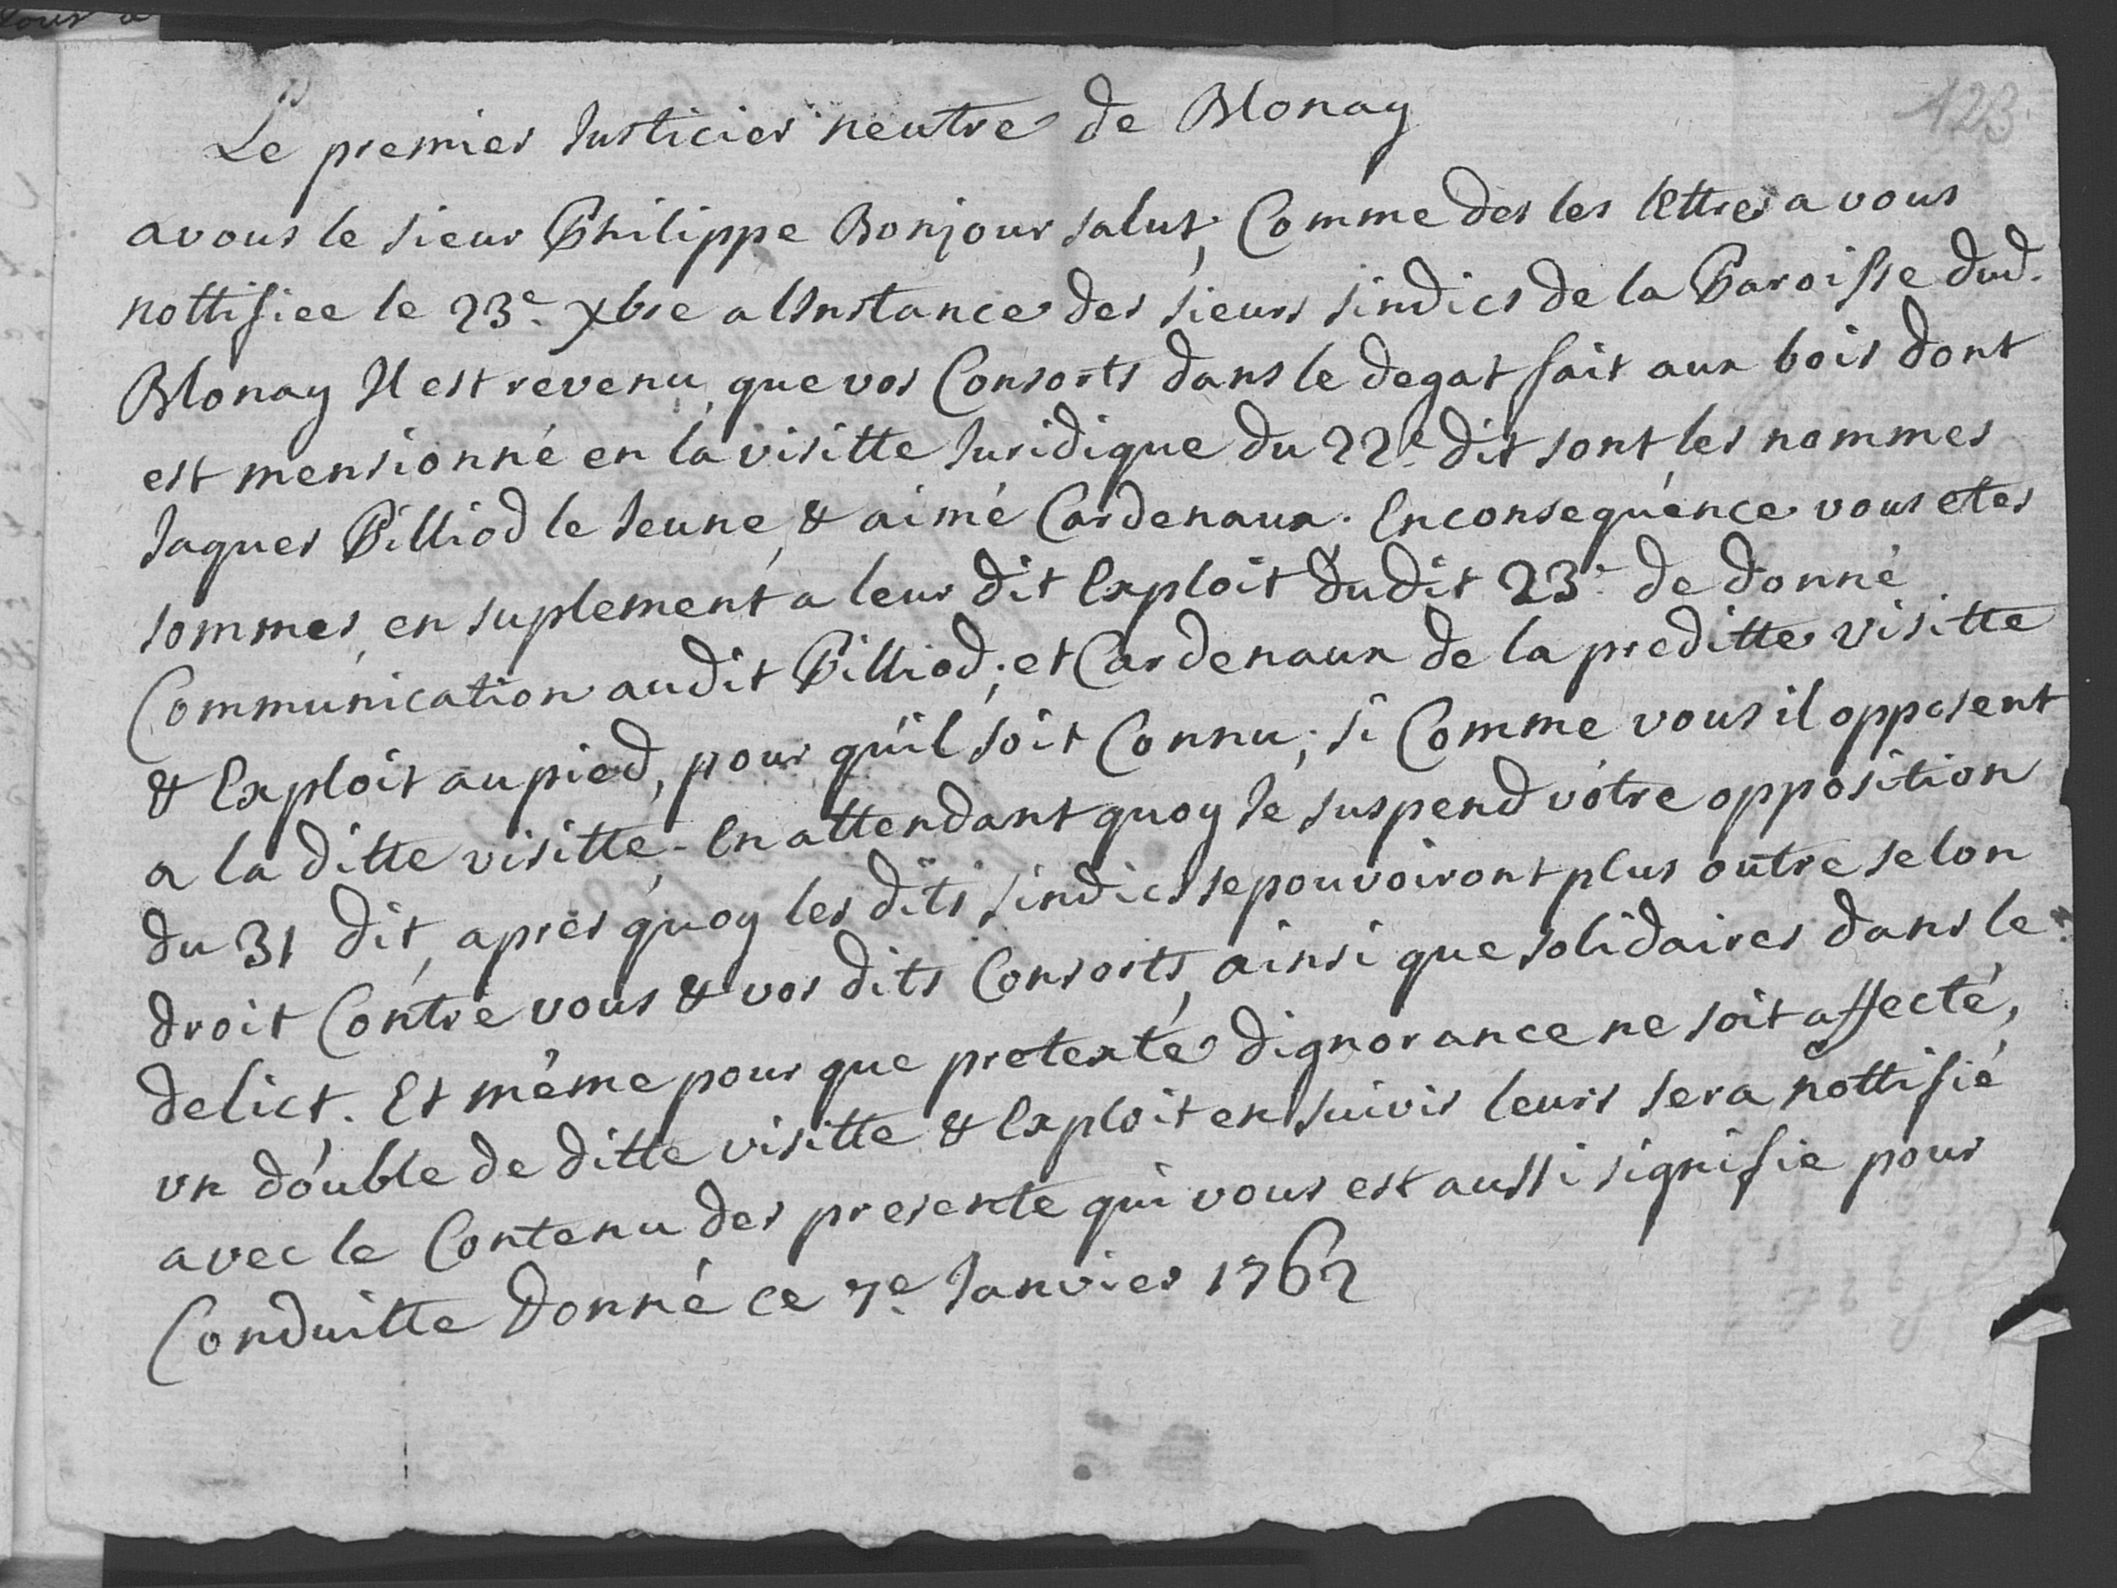 123
Le premier Justicier neutre de Blonay
a vous le sieur Philippe Bonjour salut, Comme des les lettres a vous
nottifiee le 23e. xbre a lInstance des sieurs sindics de la Paroisse dud.
Blonay Il est revenu, que vos Consorts dans le degat fait aux bois dont
est mensionné en la visitte Juridique du 22e. dit sont, les nommes
Jaques Pilliod le Jeune, & aimé Cardenaux. En consequénce vous etes
sommes, en suplement a leur dit Exploit dudit 23e. de donné
Communication audit Pilliod; et Cardenaux de la preditte visitte
& Exploit au pied, pour quil soit Connu; si Comme vous il opposent
a la ditte visitte. En attendant quoy Je suspend vôtre opposition
du 31 dit, apres quoy les dits sindics se pouvoiront plus outre selon
droit Contre vous & vos dits Consorts, ainsi que solidaires dans le
delict. Et même pour que pretexte dignorance ne soit affecté,
un double de ditte visitte & Exploit en suivis leurs sera nottifié
avec le Contenu des presente qui vous est aussi signifie pour
Conduitte Donné ce 7e. Janvier 1762